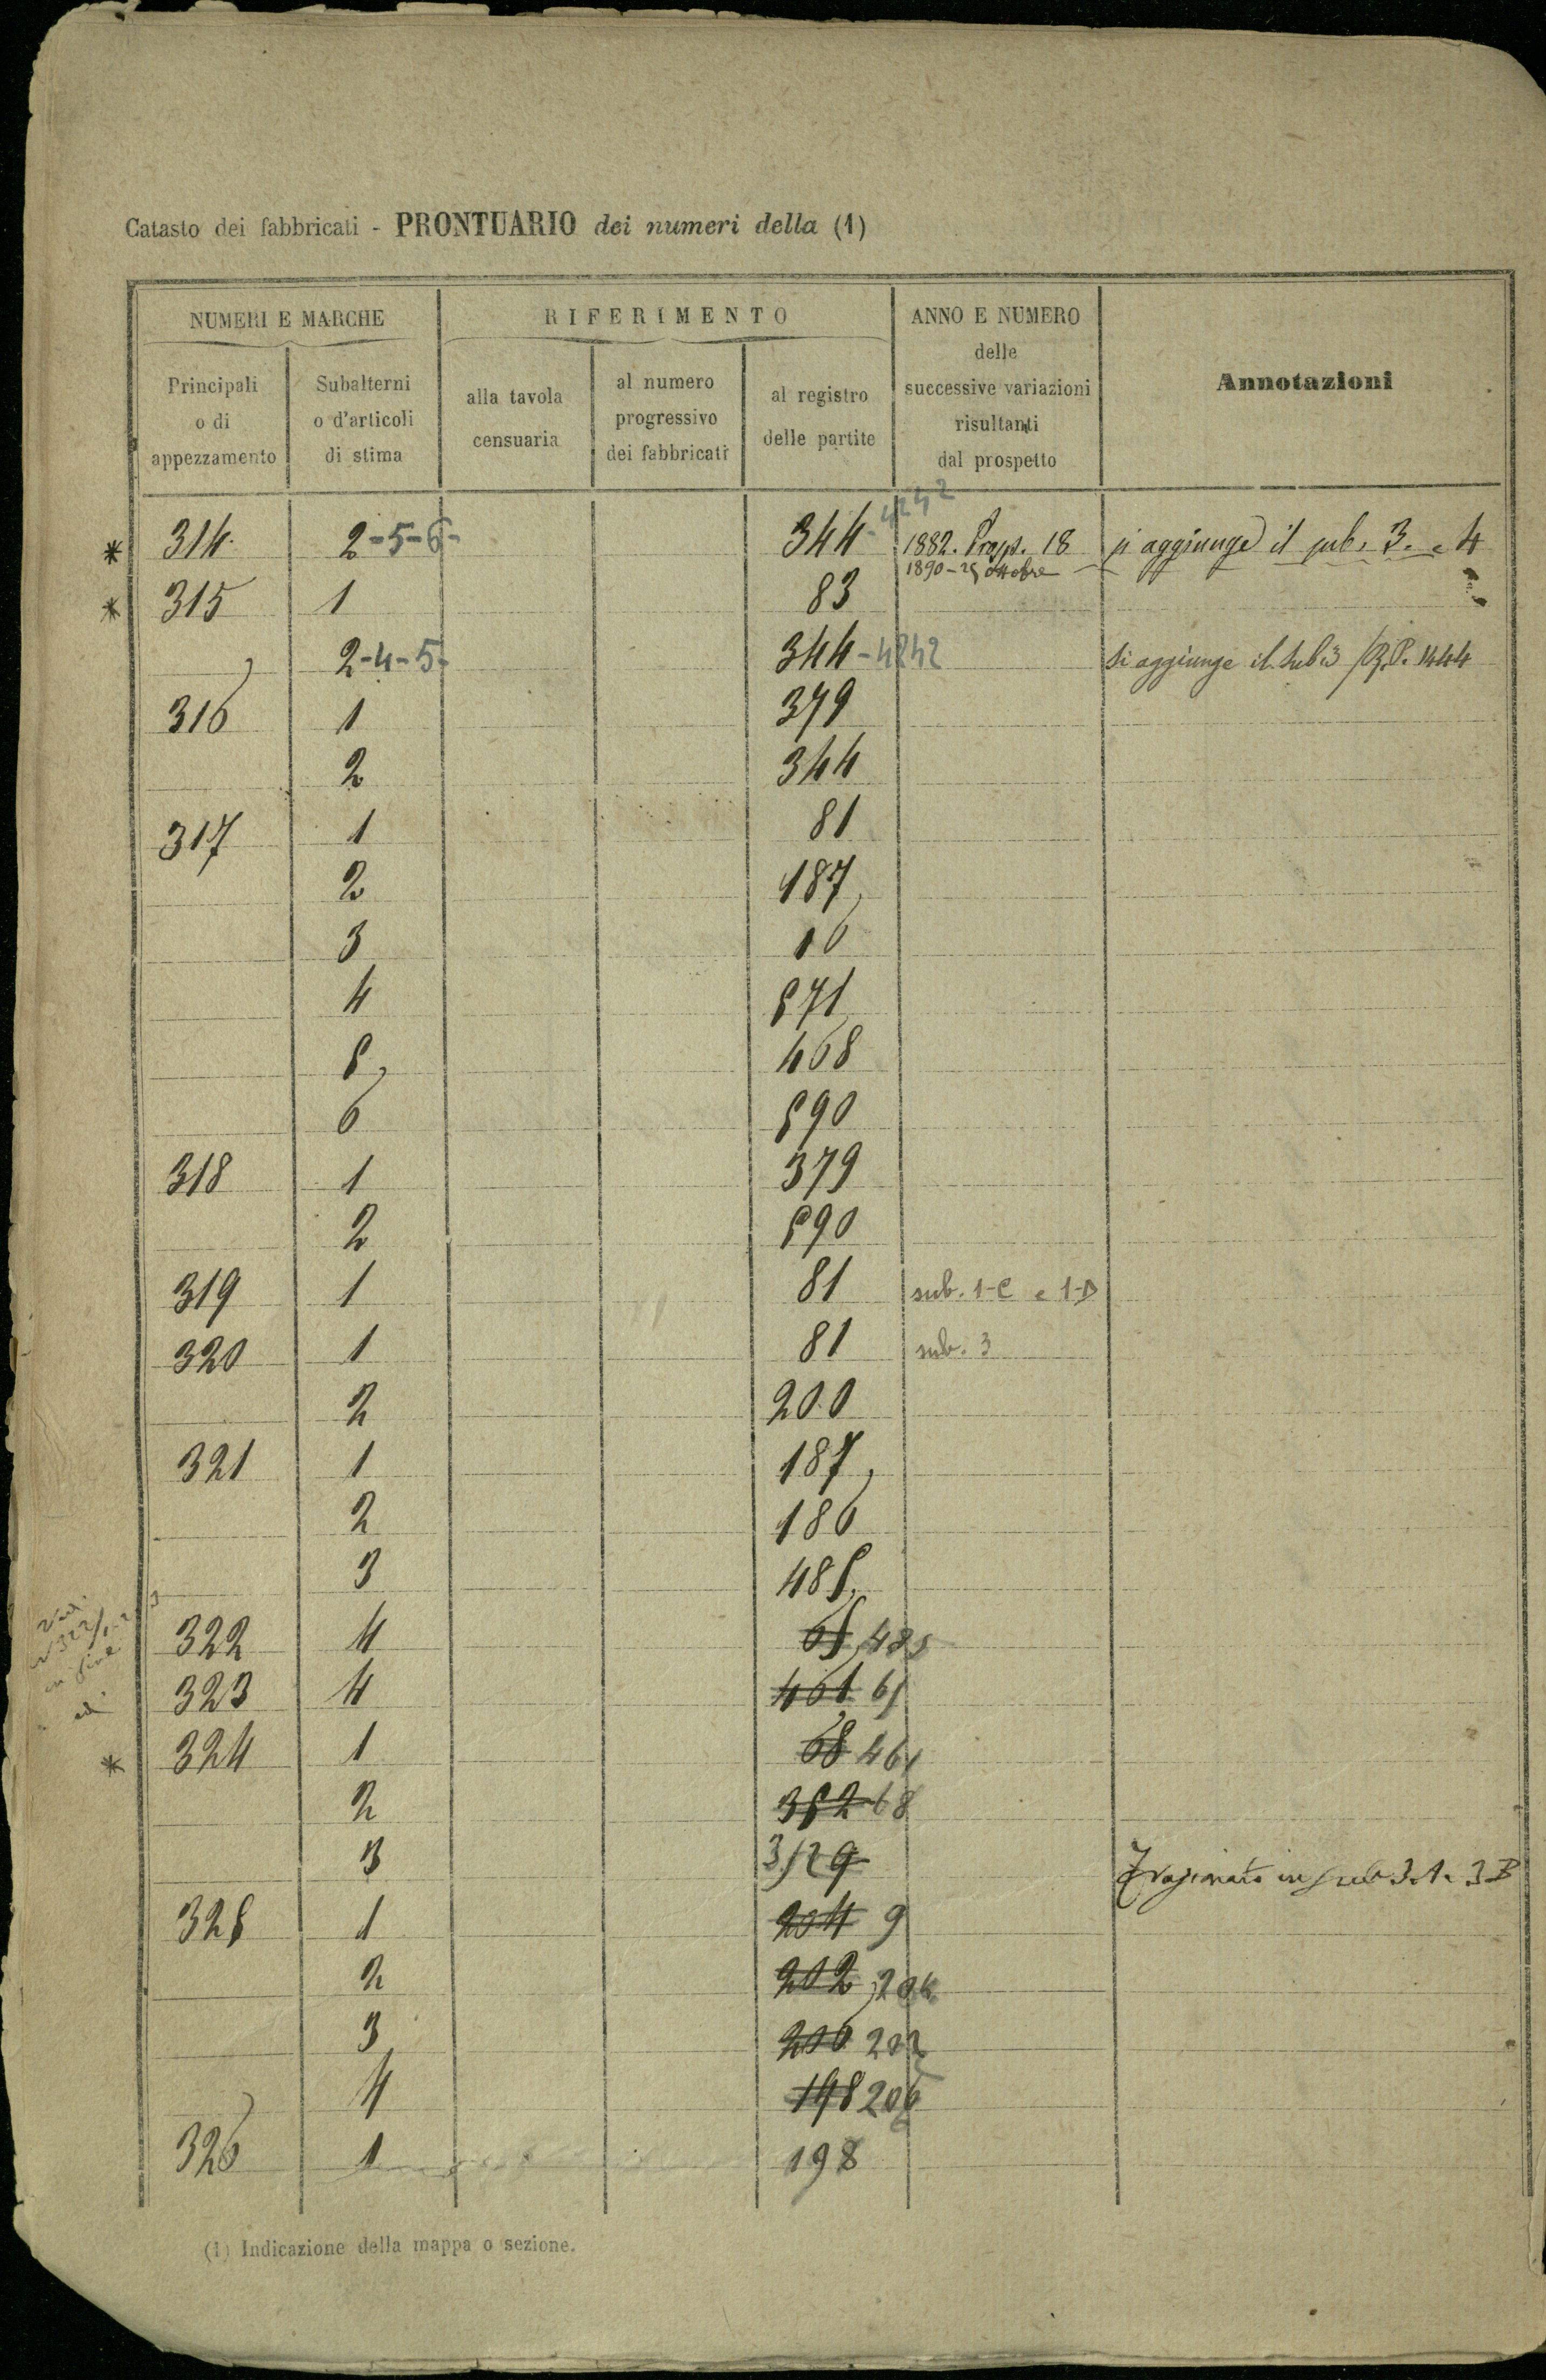 Catasto dei fabbricati - PRONTUARIO dei numeri della (1)
NUMERI E MARCHE
RIFERIMENTO
ANNO E NUMERO
delle
successive variazioni
risultanti
dal prospetto
Annotazioni
Principali
o di
appezzamento
Subalterni
o d'articoli
di stima
alla tavola
censuaria
al numero
progressivo
dei fabbricati
al registro
delle partite
* 314 2-5-6- 344-4242 1882. Prosp. 18 si aggiunge il sub. 3. e 4
1890 - 25 ottobre
* 315 1 83
2-4-5- 344-4242 si aggiunge il sub 3 / R.P. 1444
316 1 379
2 344
317 1 81
2 187
3 16
4 571
5 468
6 590
318 1 379
2 590
319 1 81 sub. 1-C e 1-D
320 1 81 sub. 3
2 200
321 1 187
2 186
3 485
322 4 65 485
323 4 461 65
* 324 1 68 461
2 352 68
3 352 9 in sub 3 A e 3 B
325 1 204 9
2 202 204
3 206 202
4 198 206
326 1 198
(1) Indicazione della mappa o sezione.